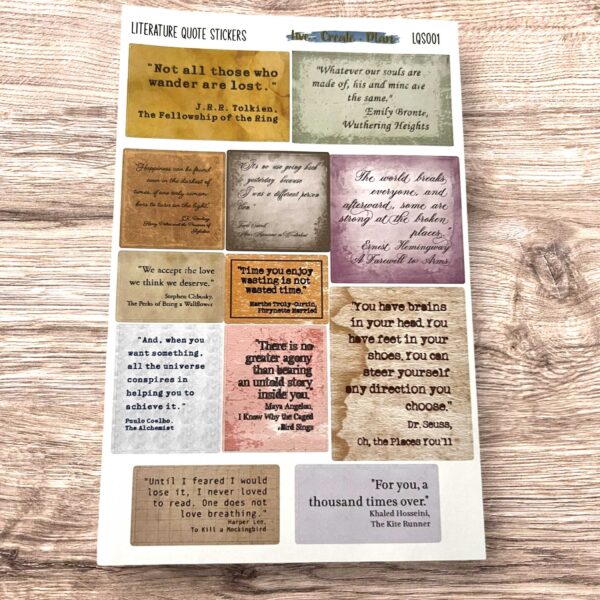 LITERATURE QUOTE STICKERS
Live. Create. Plan.
LQS001
"Not all those who
wander are lost."
J.R.R. Tolkien,
The Fellowship of the Ring
"Whatever our souls are
made of, his and mine are
the same."
Emily Bronte,
Wuthering Heights
"Happiness can be found
even in the darkest of
times, if one only remem-
bers to turn on the light.
J.K. Rowling,
Harry Potter and the Prisoner of
Azkaban
"It's no use going back
yesterday because
I was a different person
then."
Lewis Carroll
Alice's Adventures in Wonderland
The world breaks
everyone, and
afterward, some are
strong at the broken
places."
Ernest Hemingway
A Farewell to Arms
"We accept the love
we think we deserve."
Stephen Chbosky,
The Perks of Being a Wallflower
"Time you enjoy
wasting is not
wasted time."
Marthe Troly-Curtin,
Phrynette Married
"You have brains
in your head. You
have feet in your
shoes. You can
steer yourself
any direction you
choose."
Dr. Seuss,
Oh, the Places You'll
"And, when you
want something,
all the universe
conspires in
helping you to
achieve it."
Paulo Coelho,
The Alchemist
"There is no
greater agony
than bearing
an untold story
inside you."
Maya Angelou,
I Know Why the Caged
Bird Sings
"Until I feared I would
lose it, I never loved
to read. One does not
love breathing."
Harper Lee,
To Kill a Mockingbird
"For you, a
thousand times over."
Khaled Hosseini,
The Kite Runner